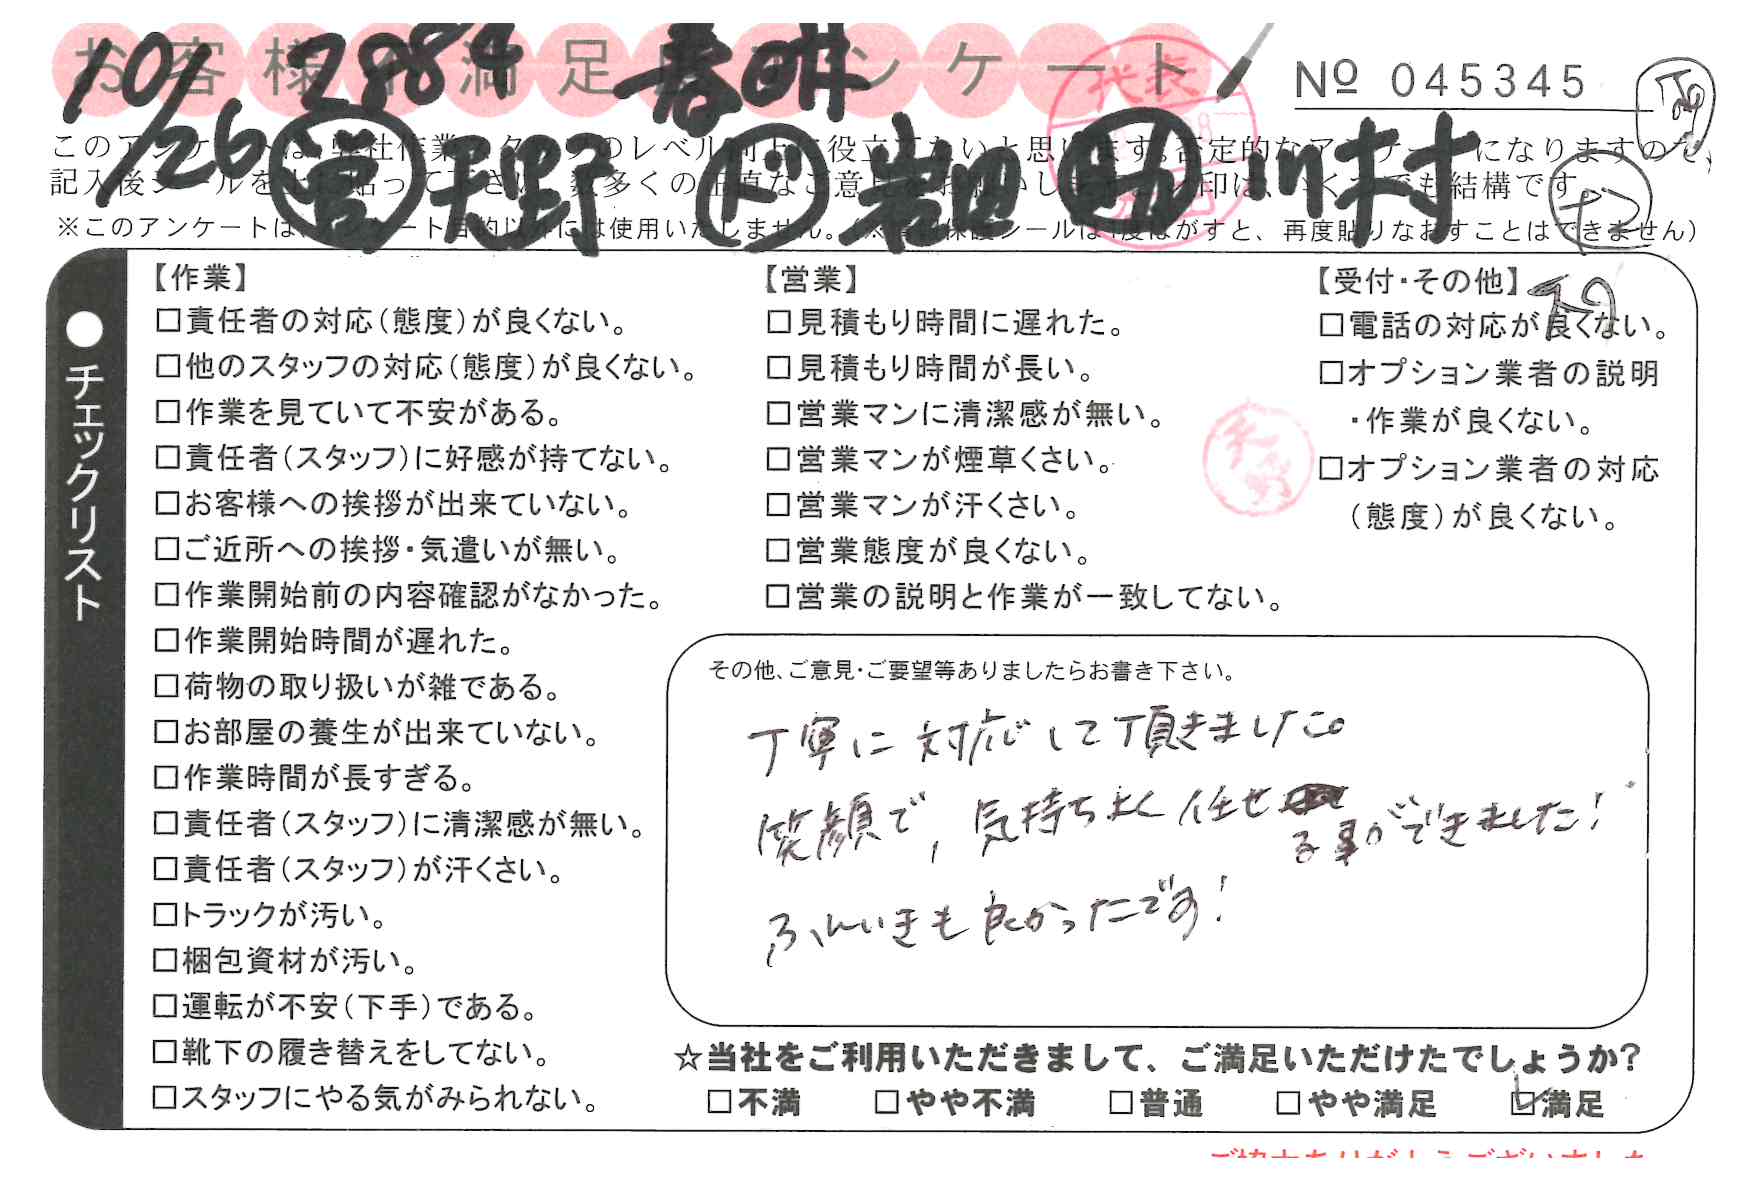 お客様 満足度アンケート
№ 045345
10/26 2884 春日井
㊂営 天野 ド 岩田 助 川村
このアンケートは、弊社作業スタッフのレベル向上に役立てたいと思います。否定的なアンケートになりますので、
記入後シールを上に貼って下さい。数多くの正直なご意見をお願いします。印は、いくつでも結構です。
※このアンケートは、アンケート目的以外には使用いたしません。(※保護シールは1度はがすと、再度貼りなおすことはできません)
代表
●チェックリスト
【作業】
□責任者の対応(態度)が良くない。
□他のスタッフの対応(態度)が良くない。
□作業を見ていて不安がある。
□責任者(スタッフ)に好感が持てない。
□お客様への挨拶が出来ていない。
□ご近所への挨拶・気遣いが無い。
□作業開始前の内容確認がなかった。
□作業開始時間が遅れた。
□荷物の取り扱いが雑である。
□お部屋の養生が出来ていない。
□作業時間が長すぎる。
□責任者(スタッフ)に清潔感が無い。
□責任者(スタッフ)が汗くさい。
□トラックが汚い。
□梱包資材が汚い。
□運転が不安(下手)である。
□靴下の履き替えをしてない。
□スタッフにやる気がみられない。
【営業】
□見積もり時間に遅れた。
□見積もり時間が長い。
□営業マンに清潔感が無い。
□営業マンが煙草くさい。
□営業マンが汗くさい。
□営業態度が良くない。
□営業の説明と作業が一致してない。
天野
【受付・その他】
□電話の対応が良くない。
□オプション業者の説明
・作業が良くない。
□オプション業者の対応
(態度)が良くない。
その他、ご意見・ご要望等ありましたらお書き下さい。
丁寧に対応して頂きました。
笑顔で、気持ちよく任せる事ができました!
ふんいきも良かったです!
☆当社をご利用いただきまして、ご満足いただけたでしょうか?
□不満 □やや不満 □普通 □やや満足 ☑満足
ご協力ありがとうございました